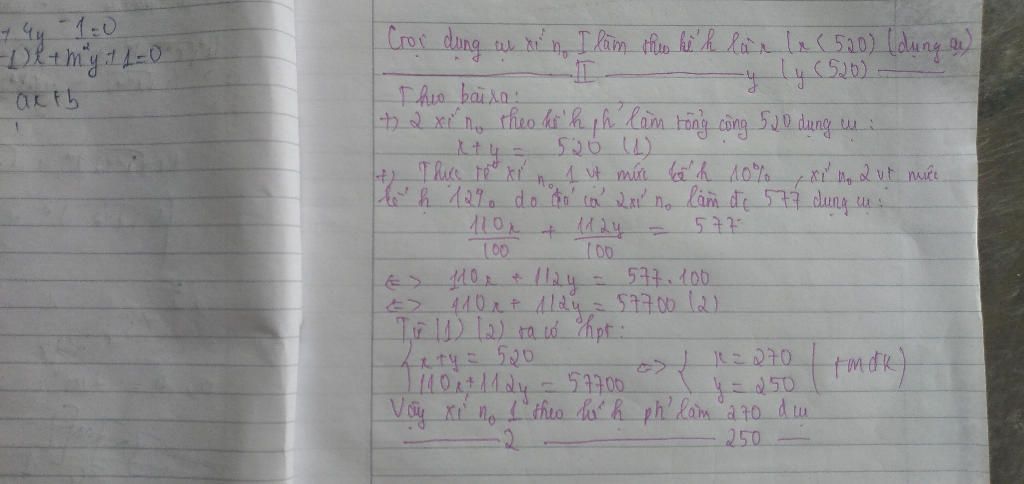 + 4y - 1 = 0
-1)x + m²y + 1 = 0
ax + b
Gọi dụng cụ xí n₀ I làm theo kế h là x (x < 520) (dụng cụ)
II y (y < 520)
Theo bài ra:
+) 2 xí n₀ theo kế h ph' làm tổng cộng 520 dụng cụ:
x + y = 520 (1)
+) Thực tế xí n₀ 1 vt mức kế h 10%, xí n₀ 2 vt mức
kế h 12% do đó cả 2 xí n₀ làm đc 577 dụng cụ:
110x/100 + 112y/100 = 577
<=> 110x + 112y = 577.100
<=> 110x + 112y = 57700 (2)
Từ (1) (2) ta có hpt:
{ x + y = 520 <=> { x = 270 (tmđk)
{ 110x + 112y = 57700 { y = 250
Vậy xí n₀ 1 theo kế h ph' làm 270 dcu
2 250